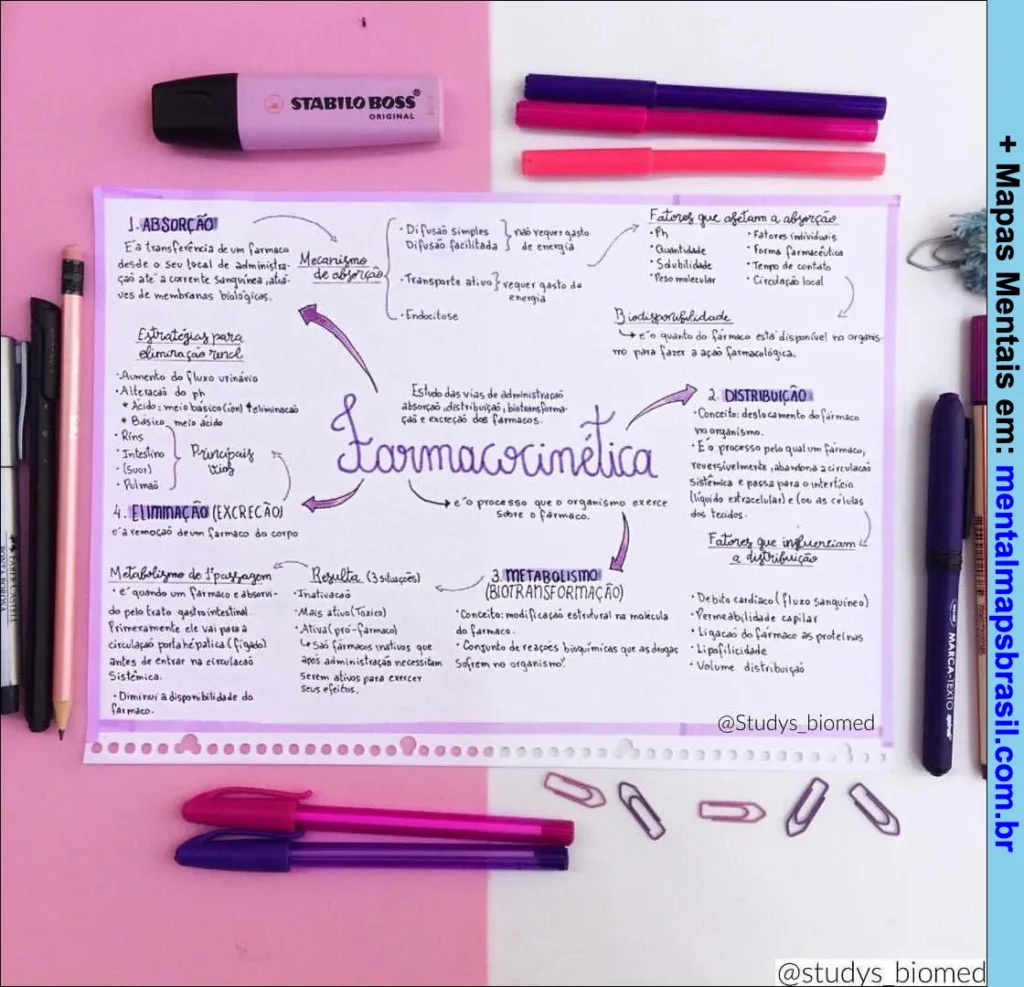 STABILO BOSS®
ORIGINAL
1. ABSORÇÃO
E'a transferência de um farmaco
desde o seu local de administra-
ção até a corrente sanguínea, atra-
ves de membranas biológicas.
Mecanismo
de absorção
· Difusão simples
Difusão facilitada
não requer gasto
de energia
· Transporte ativo
requer gasto de
energia
· Endocitose
Fatores que afetam a absorção
• Ph
• Quantidade
• Solubilidade
• Peso molecular
• Fatores individuais
• Forma farmacêutica
• Tempo de contato
• Circulação local
Biodisponibilidade
é o quanto do fármaco está disponível no organis-
mo para fazer a ação farmacológica.
Estratégias para
eliminação renal
· Aumento do fluxo urinário
· Alteracao do ph
* Ácido: meio básico (ion) ↑eliminacao
* Básico: meio ácido
· Rins
· Intestino
· (Suor)
· Pulmão
Principais
vias
4. ELIMINAÇÃO (EXCRECÃO)
e'a remoção de um farmaco do corpo
Estudo das vias de administração
absorção, distribuição, biotransforma-
ção e excreção dos farmacos.
Farmacocinética
e'o processo que o organismo exerce
sobre o fármaco.
2. DISTRIBUIÇÃO
· Conceito: deslocamento do fármaco
no organismo.
· E'o processo pelo qual um fármaco,
reversivelmente, abandona a circulação
sistêmica e passa para o interstício
(líquido extracelular) e (ou as células
dos tecidos.
Fatores que influenciam
a distribuição
· Debito cardíaco (fluxo sanguíneo)
· Permeabilidade capilar
· Ligação do fármaco às proteínas
· Lipofilicidade
· Volume distribuição
3. METABOLISMO
(BIOTRANSFORMAÇÃO)
· Conceito: modificação estrutural na molécula
do farmaco.
· Conjunto de reações bioquímicas que as drogas
Sofrem no organismo.
Resulta (3 situações)
· Inativacao
· Mais ativo (Tóxico)
· Ativa (pró-farmaco)
São fármacos inativos que
após administração necessitam
serem ativos para exercer
seus efeitos.
Metabolismo de 1ª passagem
• é quando um fármaco e absorvi-
do pelo trato gastrointestinal.
Primeramente ele vai para a
circulação porta hepática (fígado)
antes de entrar na circulacao
Sistêmica.
· Diminui a disponibilidade do
farmaco.
@Studys_biomed
MARCA-TEXTO
+ Mapas Mentais em: mentalmapsbrasil.com.br
@studys_biomed